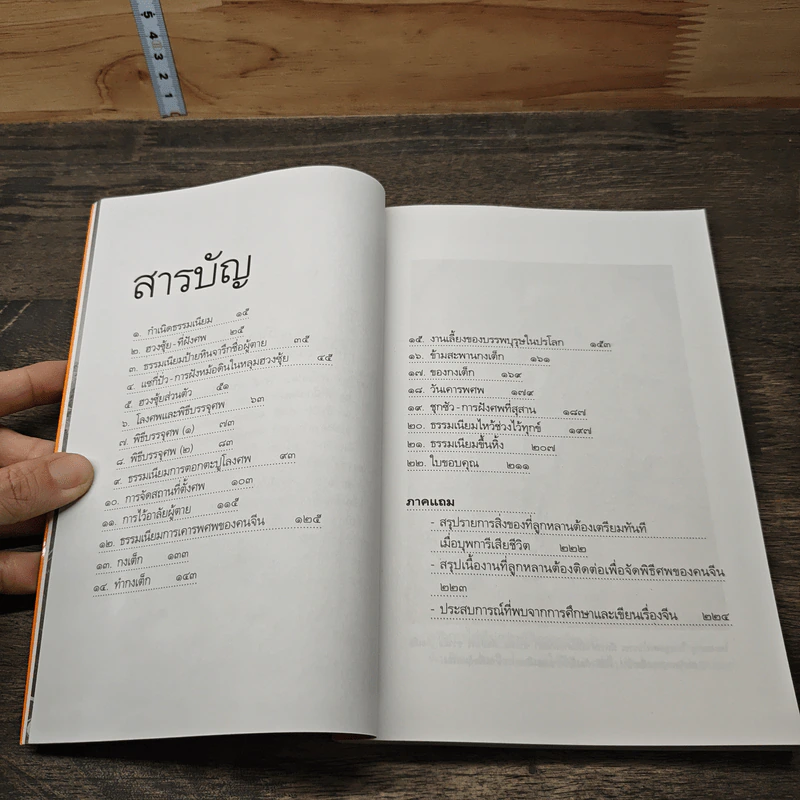 สารบัญ
๑. กำเนิดธรรมเนียม ๑๕
๒. ฮวงซุ้ย-ที่ฝังศพ ๒๕
๓. ธรรมเนียมป้ายหินจารึกชื่อผู้ตาย ๓๕
๔. แซกีปัว-การฝังหม้อดินในหลุมฮวงซุ้ย ๔๕
๕. ฮวงซุ้ยส่วนตัว ๕๑
๖. โลงศพและพิธีบรรจุศพ ๖๓
๗. พิธีบรรจุศพ (๑) ๗๓
๘. พิธีบรรจุศพ (๒) ๘๓
๙. ธรรมเนียมการตอกตะปูโลงศพ ๙๓
๑๐. การจัดสถานที่ตั้งศพ ๑๐๓
๑๑. การไว้อาลัยผู้ตาย ๑๑๕
๑๒. ธรรมเนียมการเคารพศพของคนจีน ๑๒๕
๑๓. กงเต็ก ๑๓๓
๑๔. ทำกงเต็ก ๑๔๓
๑๕. งานเลี้ยงของบรรพบุรุษในปรโลก ๑๕๓
๑๖. ข้ามสะพานกงเต็ก ๑๖๑
๑๗. ของกงเต็ก ๑๖๙
๑๘. วันเคารพศพ ๑๗๙
๑๙. ชุกซัว-การฝังศพที่สุสาน ๑๘๗
๒๐. ธรรมเนียมไหว้ช่วงไว้ทุกข์ ๑๙๗
๒๑. ธรรมเนียมขึ้นหิ้ง ๒๐๗
๒๒. ใบขอบคุณ ๒๑๑
ภาคแถม
- สรุปรายการสิ่งของที่ลูกหลานต้องเตรียมทันที
เมื่อบุพการีเสียชีวิต ๒๒๒
- สรุปเนื้องานที่ลูกหลานต้องติดต่อเพื่อจัดพิธีศพของคนจีน
๒๒๓
- ประสบการณ์ที่พบจากการศึกษาและเขียนเรื่องจีน ๒๒๔
5
4
3
2
1